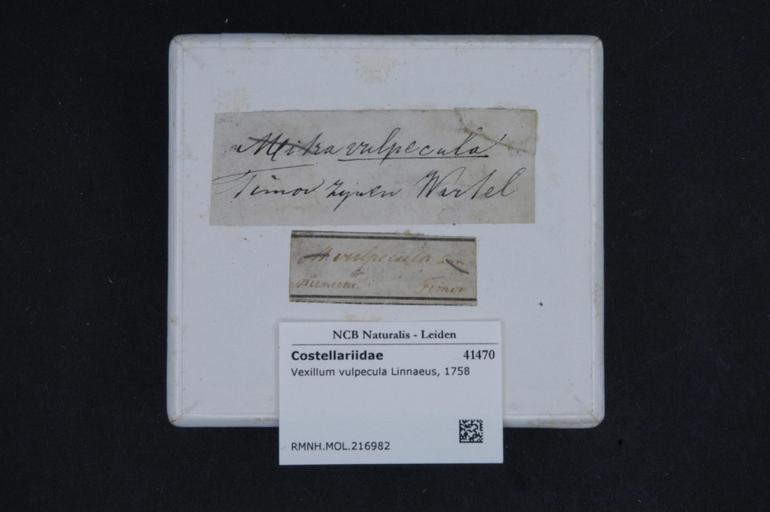 Mitra vulpecula
Timor Wartel
M. vulpecula
Timor
NCB Naturalis - Leiden
Costellariidae 41470
Vexillum vulpecula Linnaeus, 1758
RMNH.MOL.216982